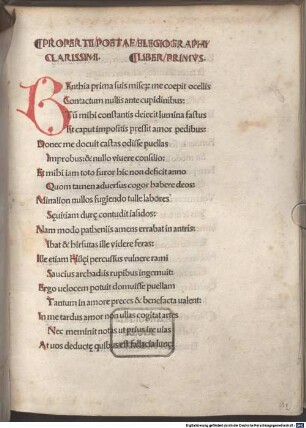 ¶PROPERTII POETAE ELEGIOGRAPHI
CLARISSIMI. ¶LIBER PRIMVS.
BYnthia prima suis miserȩ me coepit ocellis
Contactum nullis ante cupidinibus:
Tū mihi constantis deiecit lumina fastus
Et caput impositis pressit amor pedibus:
Donec me docuit castas odisse puellas
Improbus: & nullo viuere consilio:
Et mihi iam toto furor hic non deficit anno
Quom tamen aduersus cogor habere deos:
Minalion nullos fugiendo tulle labores
Sȩuitiam durȩ contudit iasidos:
Nam modo patheniis amens errabat in antris:
Ibat & hirsutas ille videre feras:
Ille etiam percussus vulnere rami
Saucius archadiis rupibus ingemuit:
Ergo uelocem potuit domuisse puellam
Tantum in amore preces & benefacta ualent:
In me tardus amor non ullas cogitat artes
Nec meminit notas ut prius ire uias
At uos deductȩ quibus est fallacia lunȩ